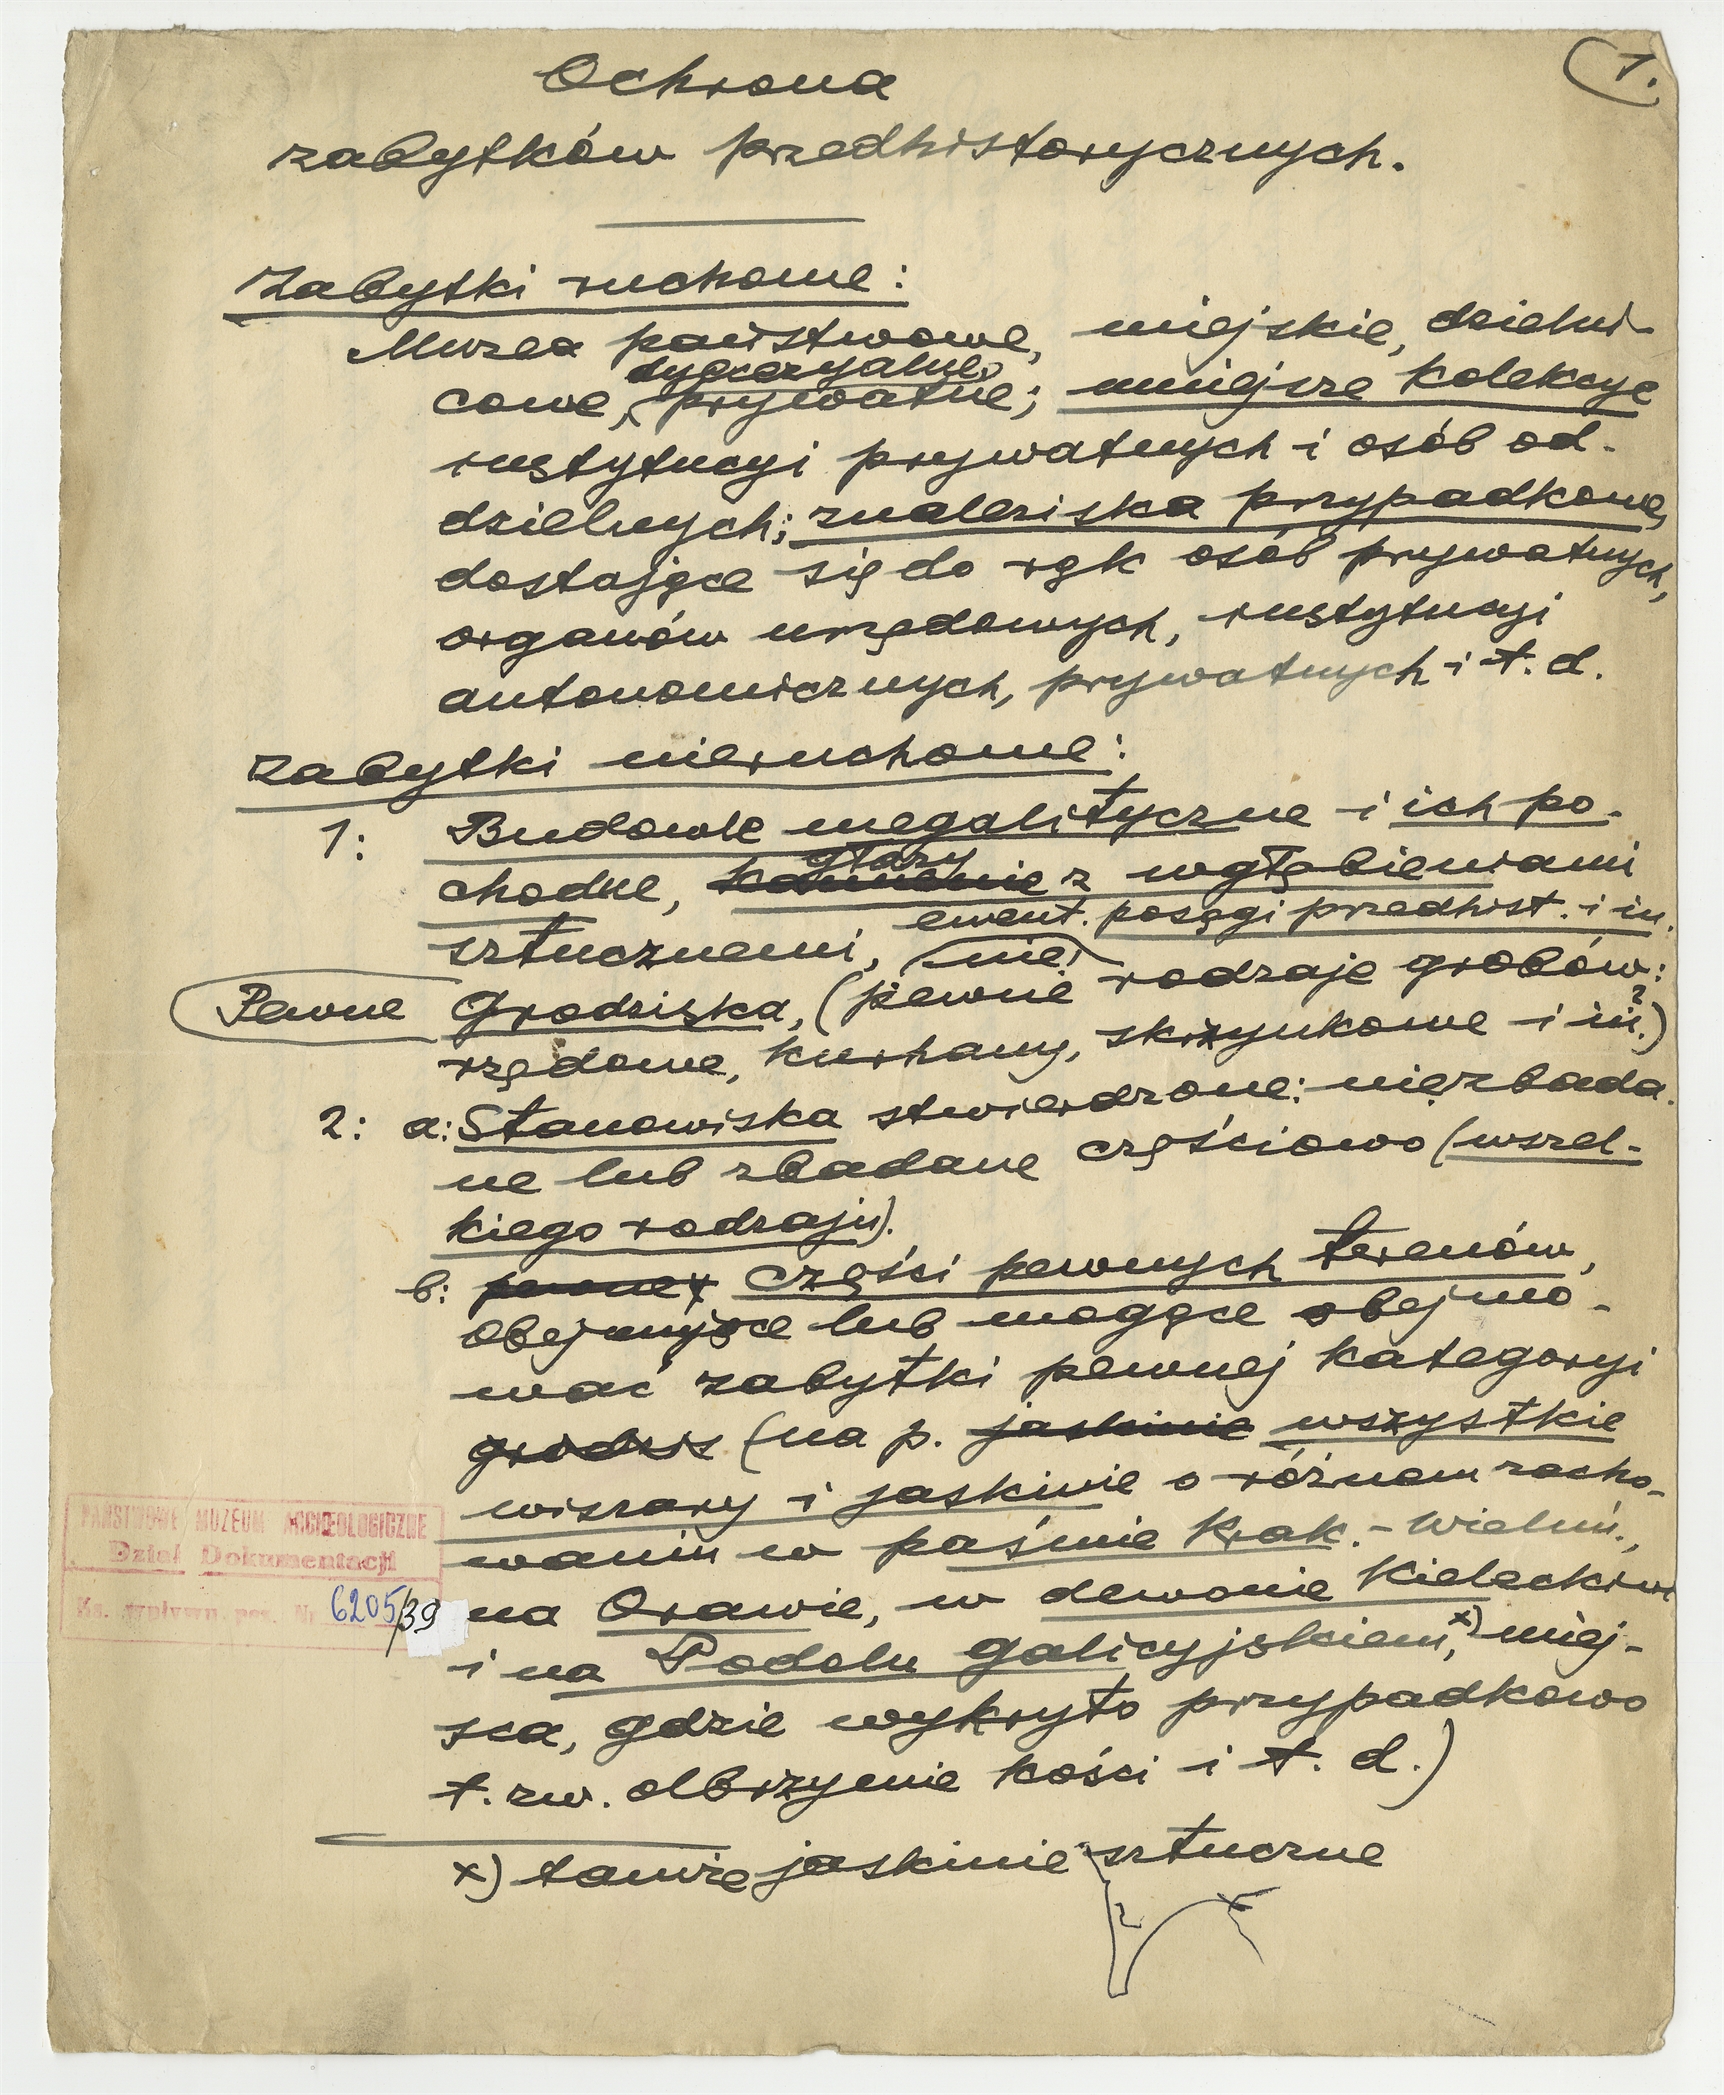 1.
Ochrona
zabytków przedhistorycznych.
Zabytki ruchome:
Muzea państwowe, miejskie, dzielni-
dyecezyalne,
cowe, prywatne; mniejsze kolekcye
instytucyi prywatnych i osób od-
dzielnych; znaleziska przypadkowe,
dostające się do rąk osób prywatnych,
organów urzędowych, instytucyi
autonomicznych, prywatnych i t. d.
Zabytki nieruchome:
1: Budowle megalityczne i ich po-
głazy
chodne, kamienie z wgłębieniami
ewent. posągi przedhist. i in.
sztucznemi, (nie)
Pewne Grodziska, (pewne rodzaje grobów:
rzędowe, kurhany, skrzynkowe i in.?)
2: a: Stanowiska stwierdzone: niezbada-
ne lub zbadane częściowo (wszel-
kiego rodzaju).
b: pewne części pewnych terenów,
obejmujące lub mogące obejmo-
wać zabytki pewnej kategoryi
grodzis (na p. jaskinie wszystkie
wiszary i jaskinie o różnem zacho-
waniu w paśmie Krak.-Wieluń.,
na Orawie, w dewonie Kieleckim
i na Podolu galicyjskiem,x) miej-
sca, gdzie wykryto przypadkowo
t. zw. olbrzymie kości i t. d.)
x) tamże jaskinie sztuczne
PAŃSTWOWE MUZEUM ARCHEOLOGICZNE
Dział Dokumentacji
Ks. wpływu poz. Nr 6205/39